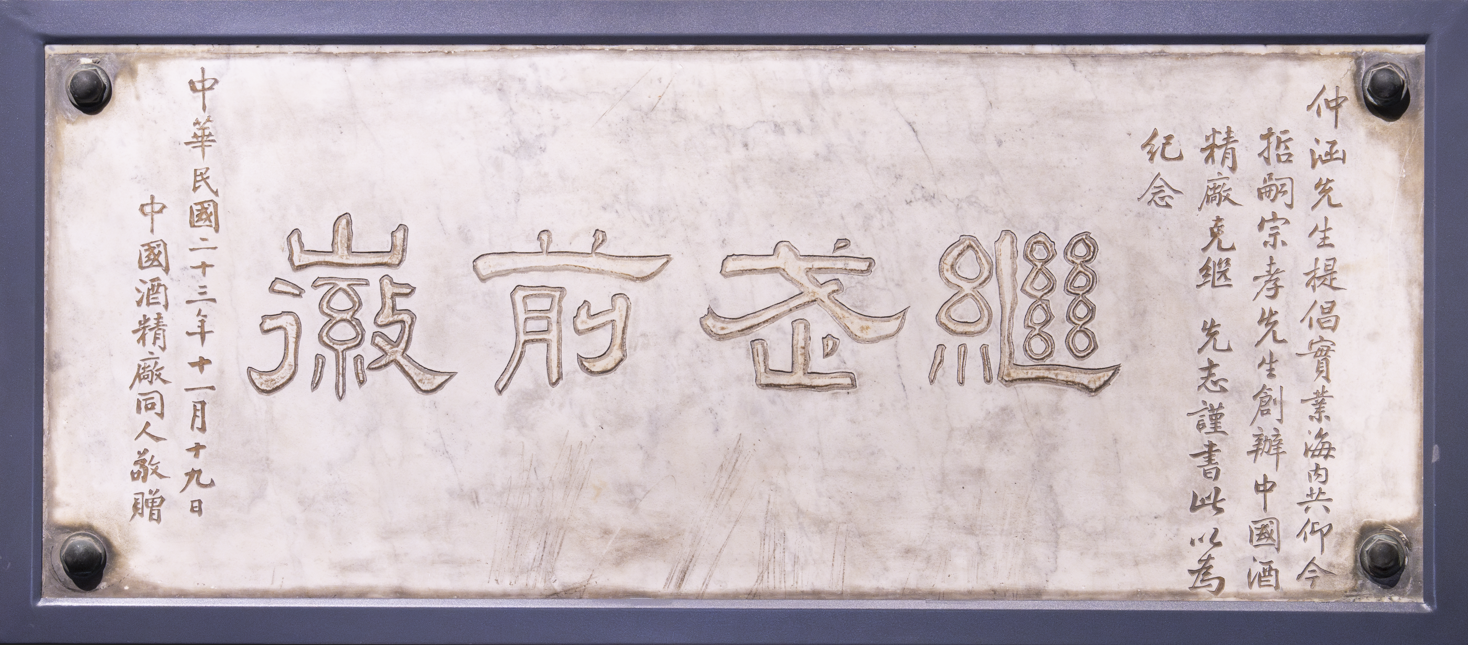 仲涵先生提倡實業海內共仰今
哲嗣宗孝先生創辦中國酒
精廠克繼 先志謹書此以為
紀念
繼武前徽
中華民國二十三年十一月十九日
中國酒精廠同人敬贈